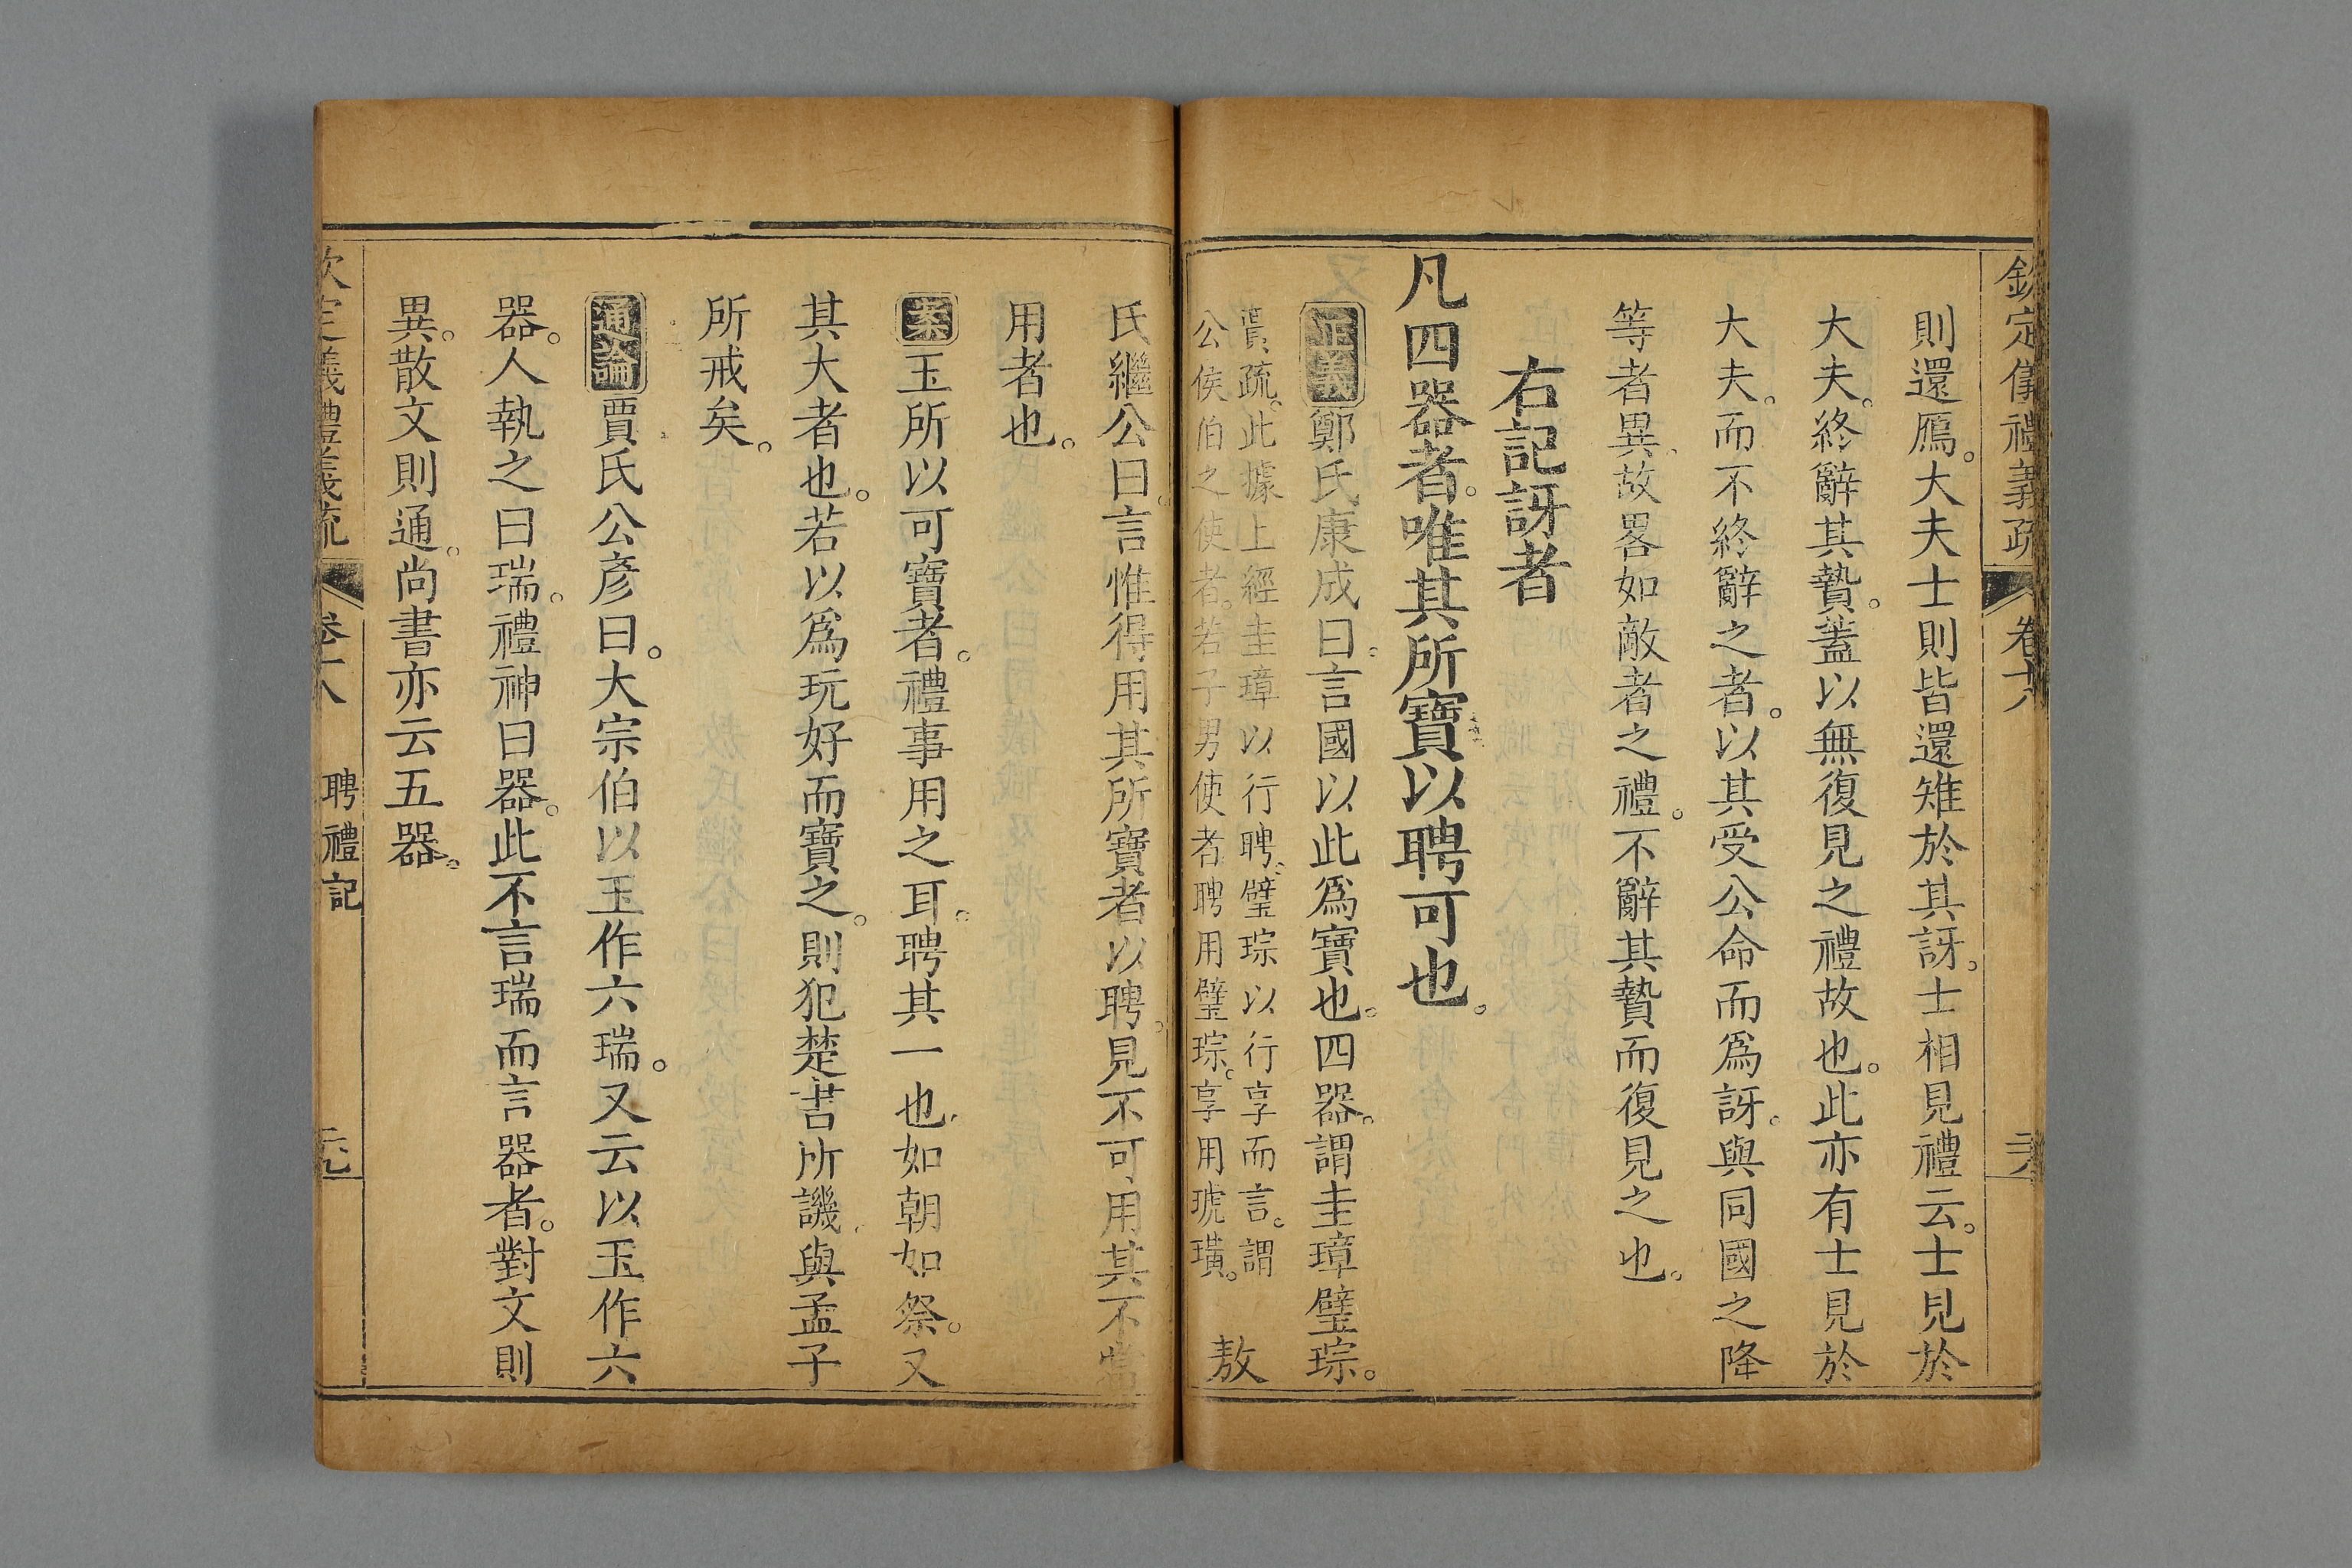 欽定儀禮義疏 卷十八
則還鴈。大夫士則皆還雉於其訝。士相見禮云。士見於
大夫。終辭其贄。蓋以無復見之禮故也。此亦有士見於
大夫。而不終辭之者。以其受公命而爲訝。與同國之降
等者異。故畧如敵者之禮。不辭其贄而復見之也。
右記訝者
凡四器者。唯其所寶以聘可也。
正義鄭氏康成曰。言國以此爲寶也。四器。謂圭璋璧琮。
賈疏。此據上經圭璋以行聘。璧琮以行享而言。謂
公侯伯之使者。若子男使者聘用璧琮。享用琥璜。
敖
氏繼公曰。言惟得用其所寶者以聘。見不可用其不當
用者也。
案玉所以可寶者。禮事用之耳。聘其一也。如朝如祭。又
其大者也。若以爲玩好而寶之。則犯楚書所譏與孟子
所戒矣。
通論賈氏公彥曰。大宗伯以玉作六瑞。又云以玉作六
器。人執之曰瑞。禮神曰器。此不言瑞而言器者。對文則
異。散文則通。尚書亦云五器。
欽定儀禮義疏 卷十八 聘禮記